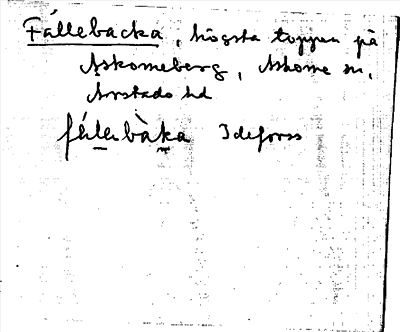 Fällebacka, högsta toppen på
Askomeberg, Askome sn,
Årstads hd
fä́lebàka Ideforss